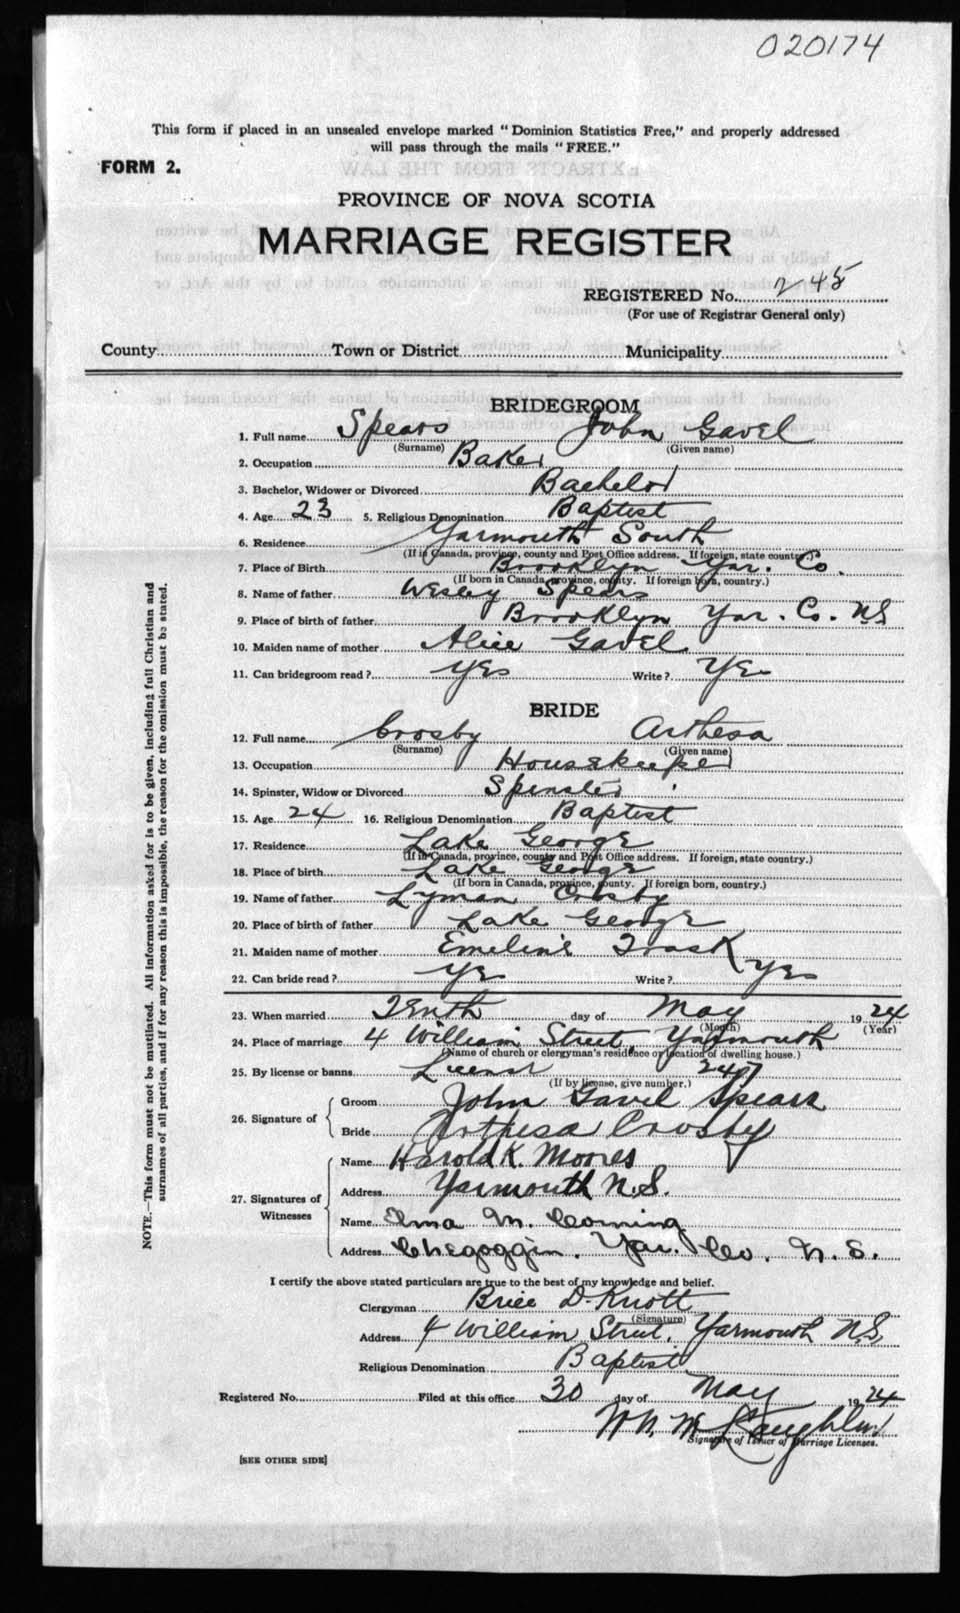 020174
This form if placed in an unsealed envelope marked "Dominion Statistics Free," and properly addressed
will pass through the mails "FREE."
FORM 2.
PROVINCE OF NOVA SCOTIA
MARRIAGE REGISTER
REGISTERED No. 245
(For use of Registrar General only)
County Town or District Municipality
BRIDEGROOM
1. Full name Spears John Gavel
(Surname) (Given name)
2. Occupation Baker
3. Bachelor, Widower or Divorced Bachelor
4. Age 23 5. Religious Denomination Baptist
6. Residence Yarmouth South
(If in Canada, province, county and Post Office address. If foreign, state country.)
7. Place of Birth Brooklyn Yar. Co.
(If born in Canada, province, county. If foreign born, country.)
8. Name of father Wesley Spears
9. Place of birth of father Brooklyn Yar. Co. NS
10. Maiden name of mother Alice Gavel
11. Can bridegroom read? yes Write? Yes
BRIDE
12. Full name Crosby Arthesa
(Surname) (Given name)
13. Occupation Housekeeper
14. Spinster, Widow or Divorced Spinster
15. Age 24 16. Religious Denomination Baptist
17. Residence Lake George
(If in Canada, province, county and Post Office address. If foreign, state country.)
18. Place of birth Lake George
(If born in Canada, province, county. If foreign born, country.)
19. Name of father Lyman Crosby
20. Place of birth of father Lake George
21. Maiden name of mother Emeline Trask
22. Can bride read? yes Write? yes
23. When married Tenth day of May 1924
(Month) (Year)
24. Place of marriage 4 William Street, Yarmouth
(Name of church or clergyman's residence or location of dwelling house.)
25. By license or banns License 2407
(If by license, give number.)
26. Signature of Groom John Gavel Spears
Bride Arthesa Crosby
27. Signatures of Witnesses Name Harold K. Moores
Address Yarmouth N.S.
Name Elma M. Corning
Address Chegoggin. Yar. Co. N. S.
I certify the above stated particulars are true to the best of my knowledge and belief.
Clergyman Brice D. Knott
(Signature)
Address 4 William Street, Yarmouth N.S.
Religious Denomination Baptist
Registered No. Filed at this office 30 day of May 1924
W. N. McLaughlin
Signature of Issuer of Marriage Licenses.
[SEE OTHER SIDE]
NOTE.—This form must not be mutilated. All information asked for is to be given, including full Christian and
surnames of all parties, and if for any reason this is impossible, the reason for the omission must be stated.